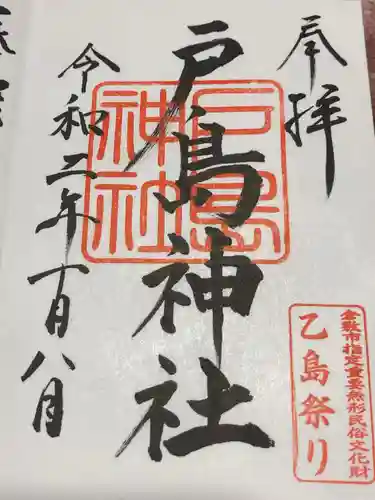 奉拝
戸島神社
戸島
神社
令和二年十一月八日
倉敷市指定重要無形民俗文化財
乙島祭り